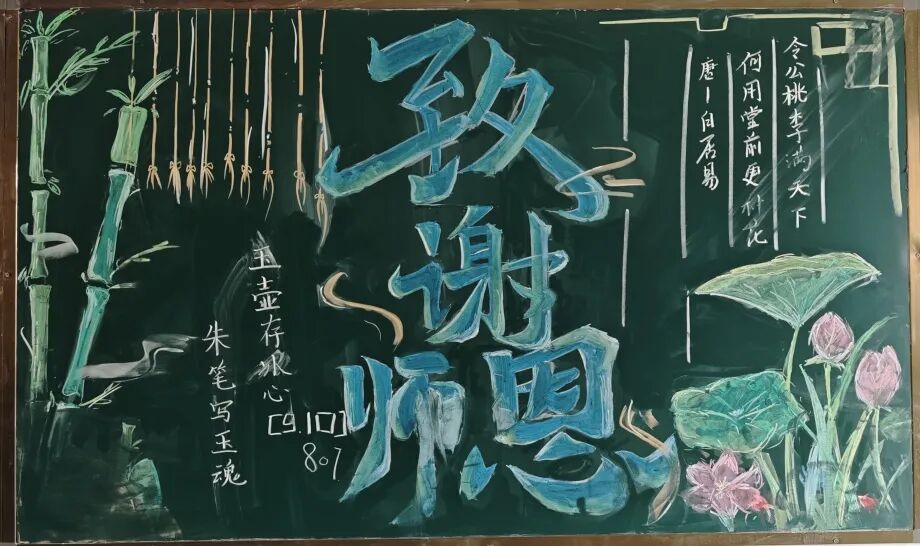 令公桃李满天下
何用堂前更种花
唐一白居易
致
谢
师恩
玉壶存冰心
朱笔写玉魂
[9.10]
807